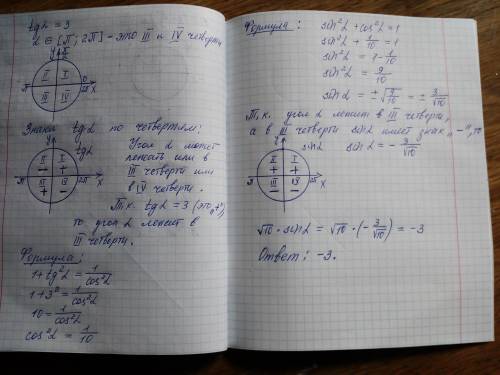 tg α = 3
α ∈ [π; 2π] - это III и IV четверти
y
II I
π 0
III IV 2π x
Знаки tg α по четвертям:
y tg α
II I
- +
π
III IV
+ - 2π x
Угол α может
лежать или в
III четверти или
в IV четверти.
Т.к. tg α = 3 (это „+“),
то угол α лежит в
III четверти.
Формула:
1 + tg²α = 1/cos²α
1 + 3² = 1/cos²α
10 = 1/cos²α
cos²α = 1/10
Формула: sin²α + cos²α = 1
sin²α + 1/10 = 1
sin²α = 1 - 1/10
sin²α = 9/10
sin α = ± √(9/10) = ± 3/√10
Т.к. угол α лежит в III четверти,
а в III четверти sin α имеет знак „-“, то
y sin α sin α = - 3/√10
II I
+ +
π
III IV
- - 2π x
√10 · sin α = √10 · (- 3/√10) = -3
Ответ: -3.